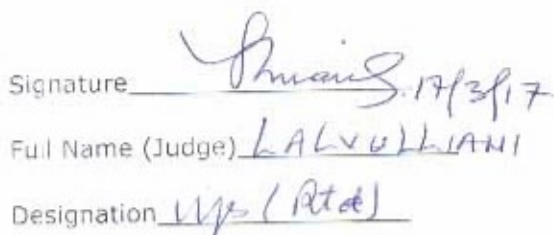 Signature 17/3/17
Full Name (Judge) LALVULLIANI
Designation (Rtd)